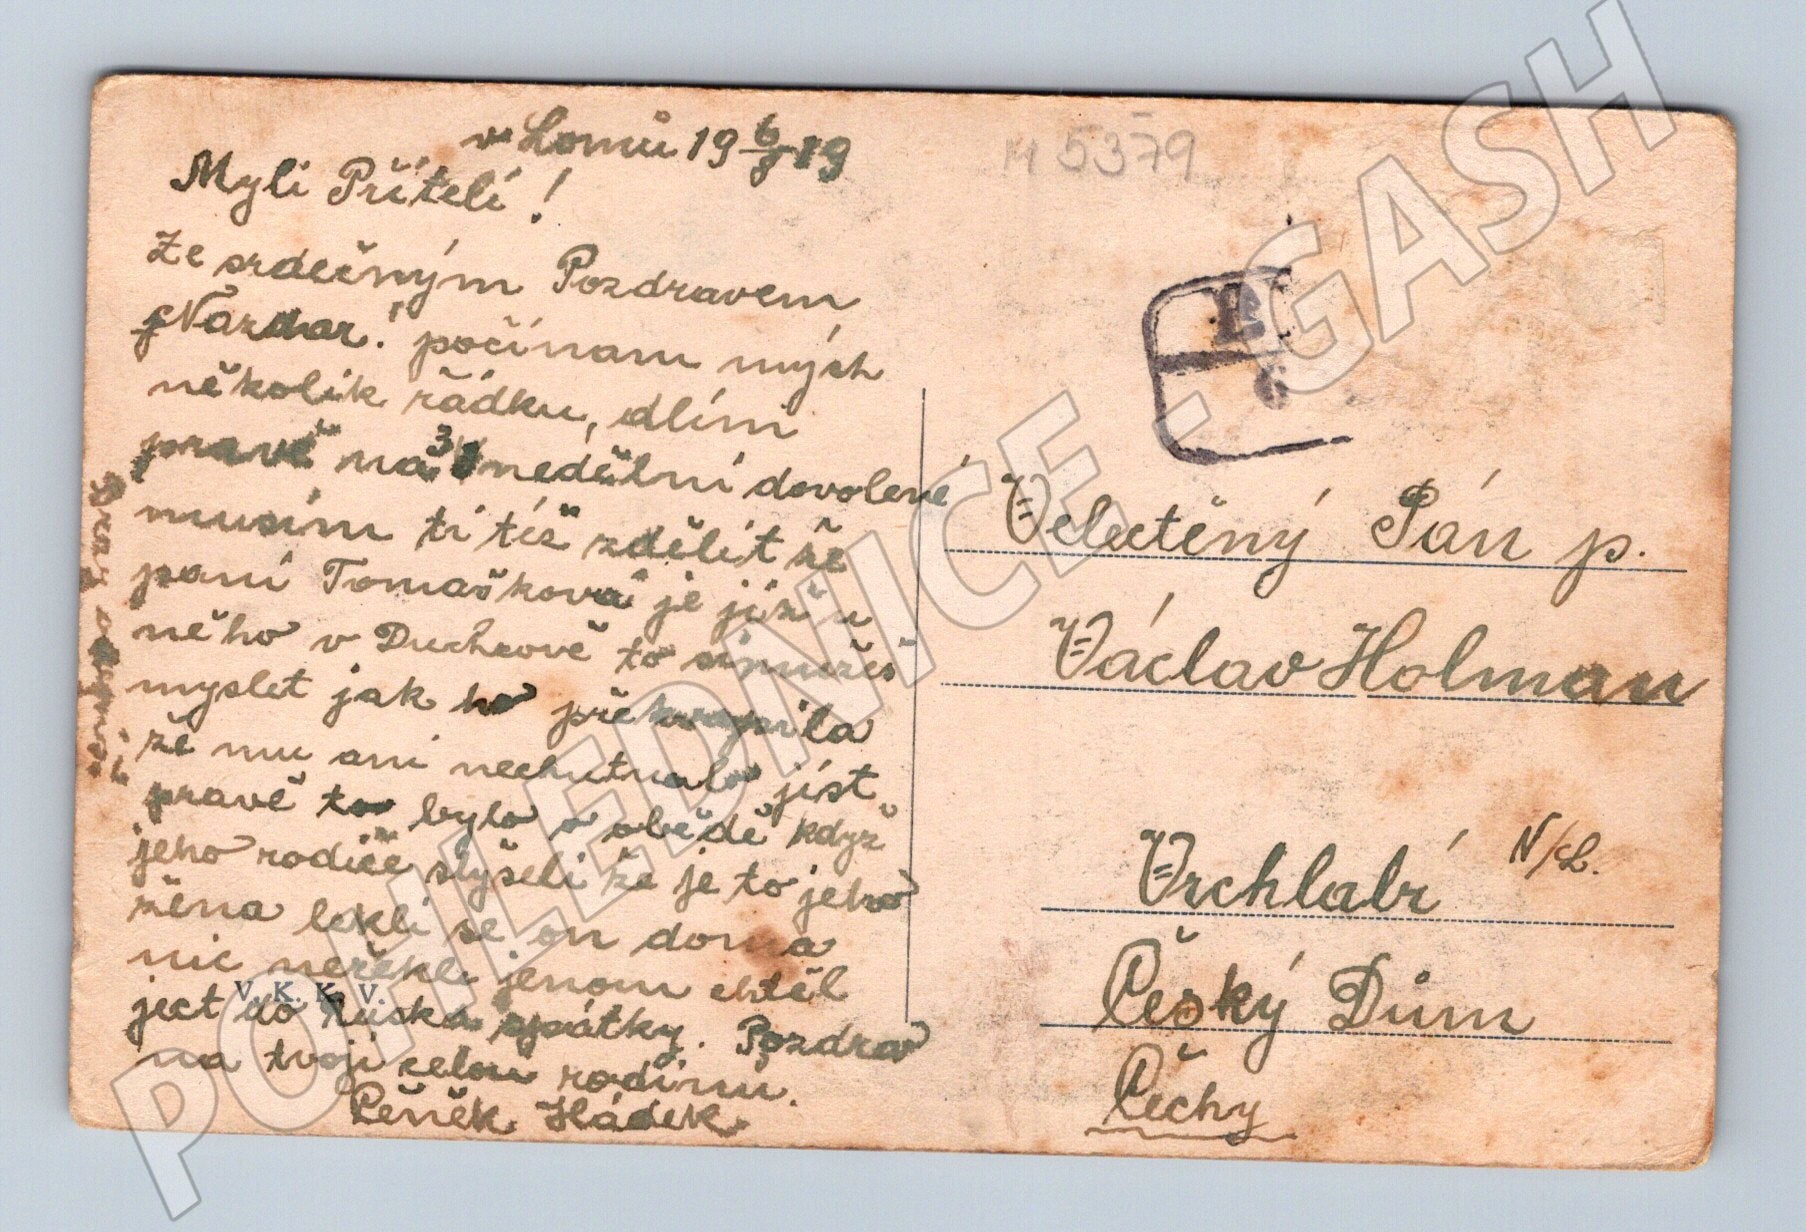 v Lomu 19 6/8 19
M 5379
Myli Přítelí!
Ze srdečným Pozdravem
„Nazdar!" počínam mých
několik řádku, dlím
pravě na 3 nedělní dovolené
musím ti též zdělit že
paní Tomaškova je již u
něho v Duchcově to si mužeš
myslet jak ho překvapila
že mu ani nechutnalo jíst
pravě to bylo o obědě když
jeho rodiče slyšeli že je to jeho
žena lekli se on doma
nic neřekl jenom chtěl
ject do Ruska spátky. Pozdrav
na tvoji celou rodinu.
Čeněk Hádek
V. K. K. V.
P
6
Velectěný Pán p.
Václav Holman
Vrchlabí N/L.
Český Dům
Čechy
POHLEDNICE - GASH